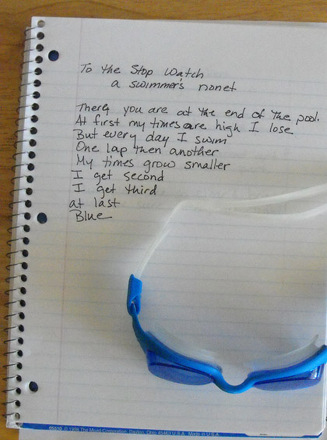 To the Stop Watch
a swimmer's nonet
There, you are at the end of the pool.
At first my times are high I lose
But every day I swim
One lap then another
My times grow smaller
I get second
I get third
at last
Blue